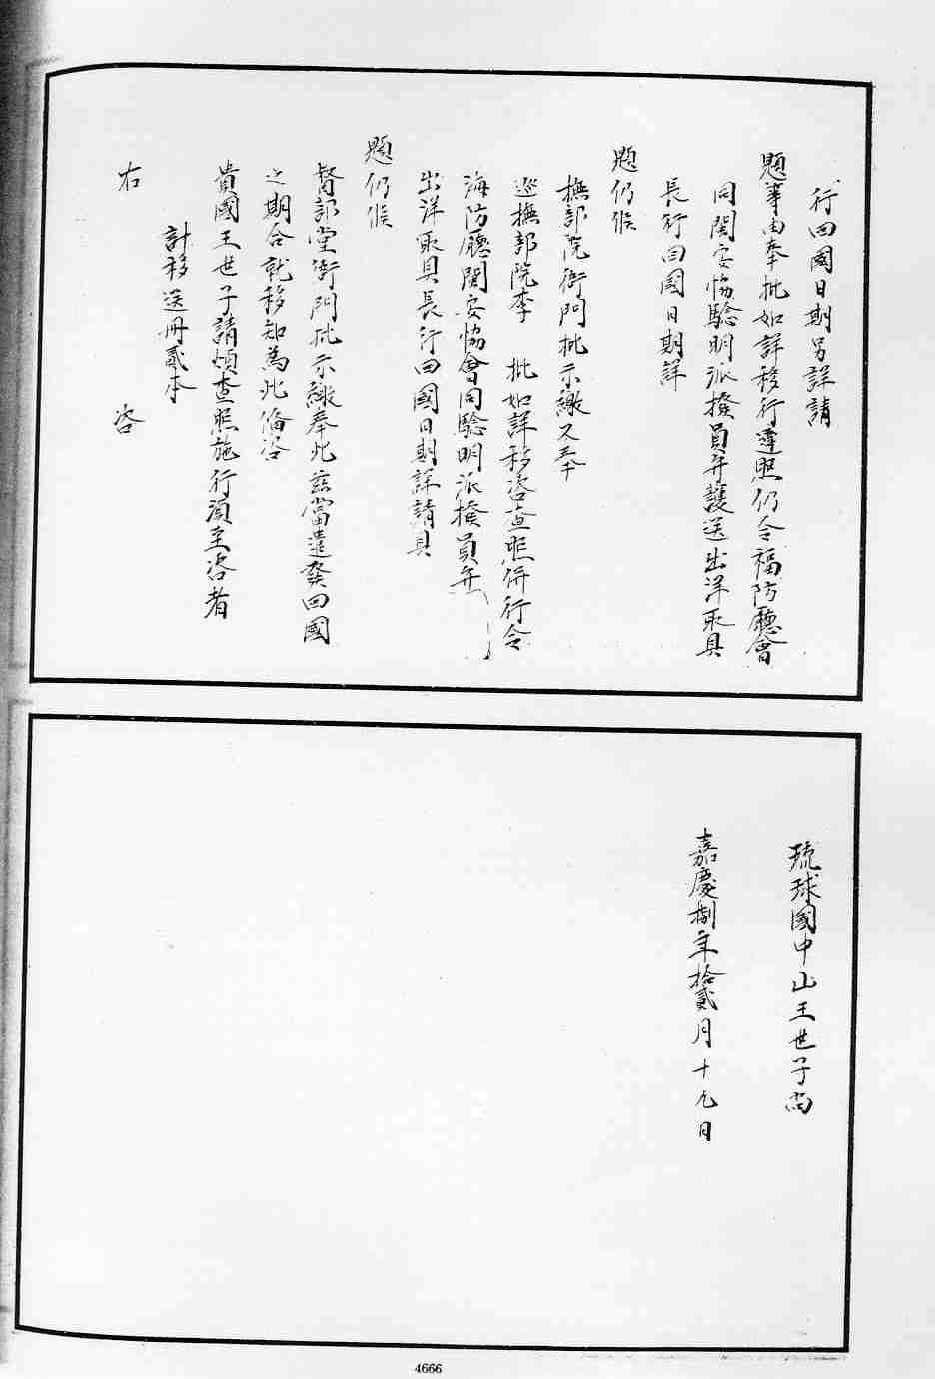 行回國日期另詳請
題等由奉批如詳移行遵照仍令福防廳會
同閩安協驗明派撥員弁護送出洋取具
長行回國日期詳
題仍候
撫部院衙門批示繳又奉
巡撫部院李 批如詳移咨查照併行令
海防廳閩安協會同驗明派撥員弁
出洋取具長行回國日期詳請具
題仍候
督部堂衙門批示繳奉此茲當遣發回國
之期合就移知為此備咨
貴國王世子請煩查照施行須至咨者
計移送冊貳本
右 咨
琉球國中山王世子尚
嘉慶捌年拾貳月十九日
4666